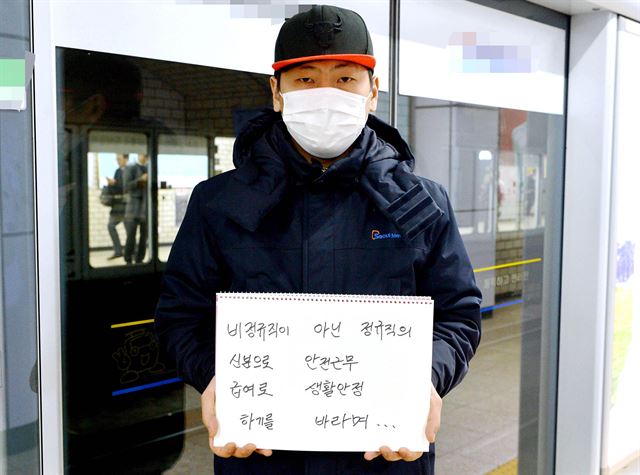 비정규직이 아닌 정규직의
신분으로 안전근무
급여로 생활안정
하기를 바라며...